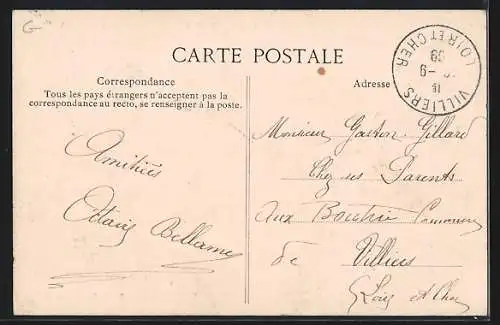 G-
CARTE POSTALE
Correspondance
Tous les pays étrangers n'acceptent pas la
correspondance au recto, se renseigner à la poste.
Amitiés
Bellamy
Adresse
VILLIERS
LOIR ET CHER
-9
09
Monsieur Gaston Gillard
Chez ses Parents
aux
de Villiers
Loir et Cher